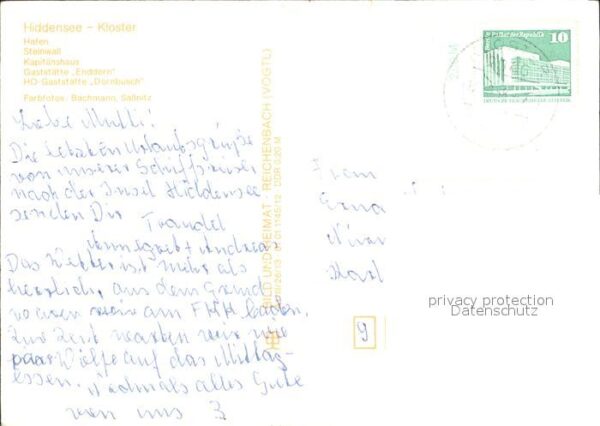 Hiddensee – Kloster
Hafen
Steinwall
Kapitänshaus
Gaststätte „Enddorn"
HO-Gaststätte „Dornbusch"
Farbfotos: Bachmann, Saßnitz
BILD UND HEIMAT · REICHENBACH (VOGTL)
01 01 1145/12 DDR 0,20 M
10
Liebe Mutti!
Die letzten Urlaubsgrüße
von unserer Schiffsreise
nach der Insel Hiddensee
senden Dir
Traudel
Annegret + Andreas
Das Wetter ist mehr als
herrlich, aus dem Grund
waren wir am FKK baden.
Zur Zeit warten wir wie
paar Wölfe auf das Mittag-
essen. Nochmals alles Gute
von uns 3
Frau
Erna
Karl
9
privacy protection
Datenschutz